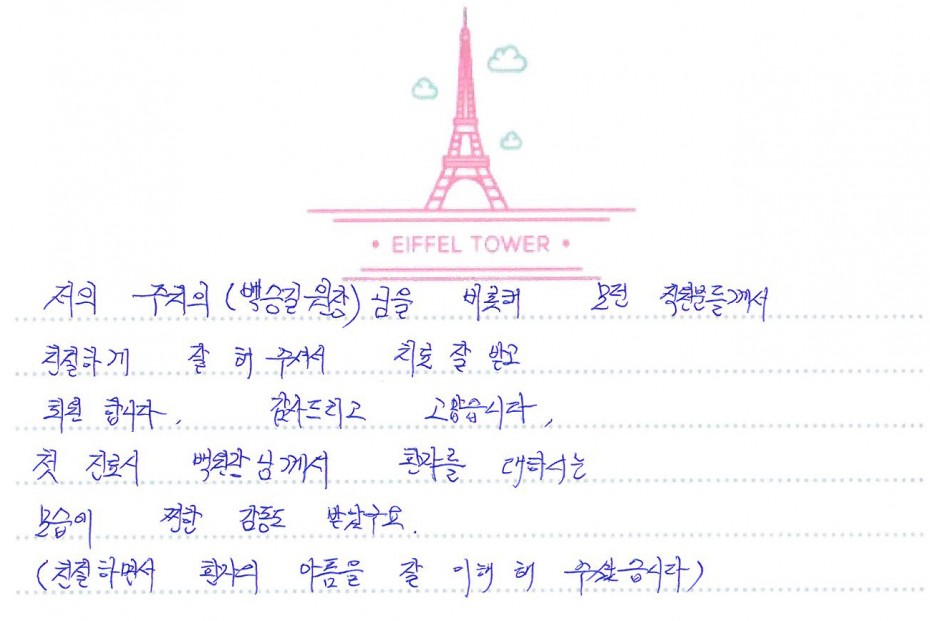 • EIFFEL TOWER •
저의 주치의 (백승길 원장)님을 비롯해 모던 직원분들께서
친절하게 잘 해 주셔서 치료 잘 받고
퇴원 합니다. 감사드리고 고맙습니다,
첫 진료시 백원장님께서 환자를 대하시는
모습에 찐한 감동도 받았구요.
(친절하면서 환자의 아픔을 잘 이해 해 주셨습니다)